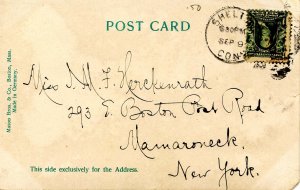 POST CARD
SHELTON
SEP 9
CONN
Miss M. F. Herckenrath
293 E. Boston Post Road
Mamaroneck.
New York.
This side exclusively for the Address.
Mason Bros. & Co., Boston, Mass.
Made in Germany.